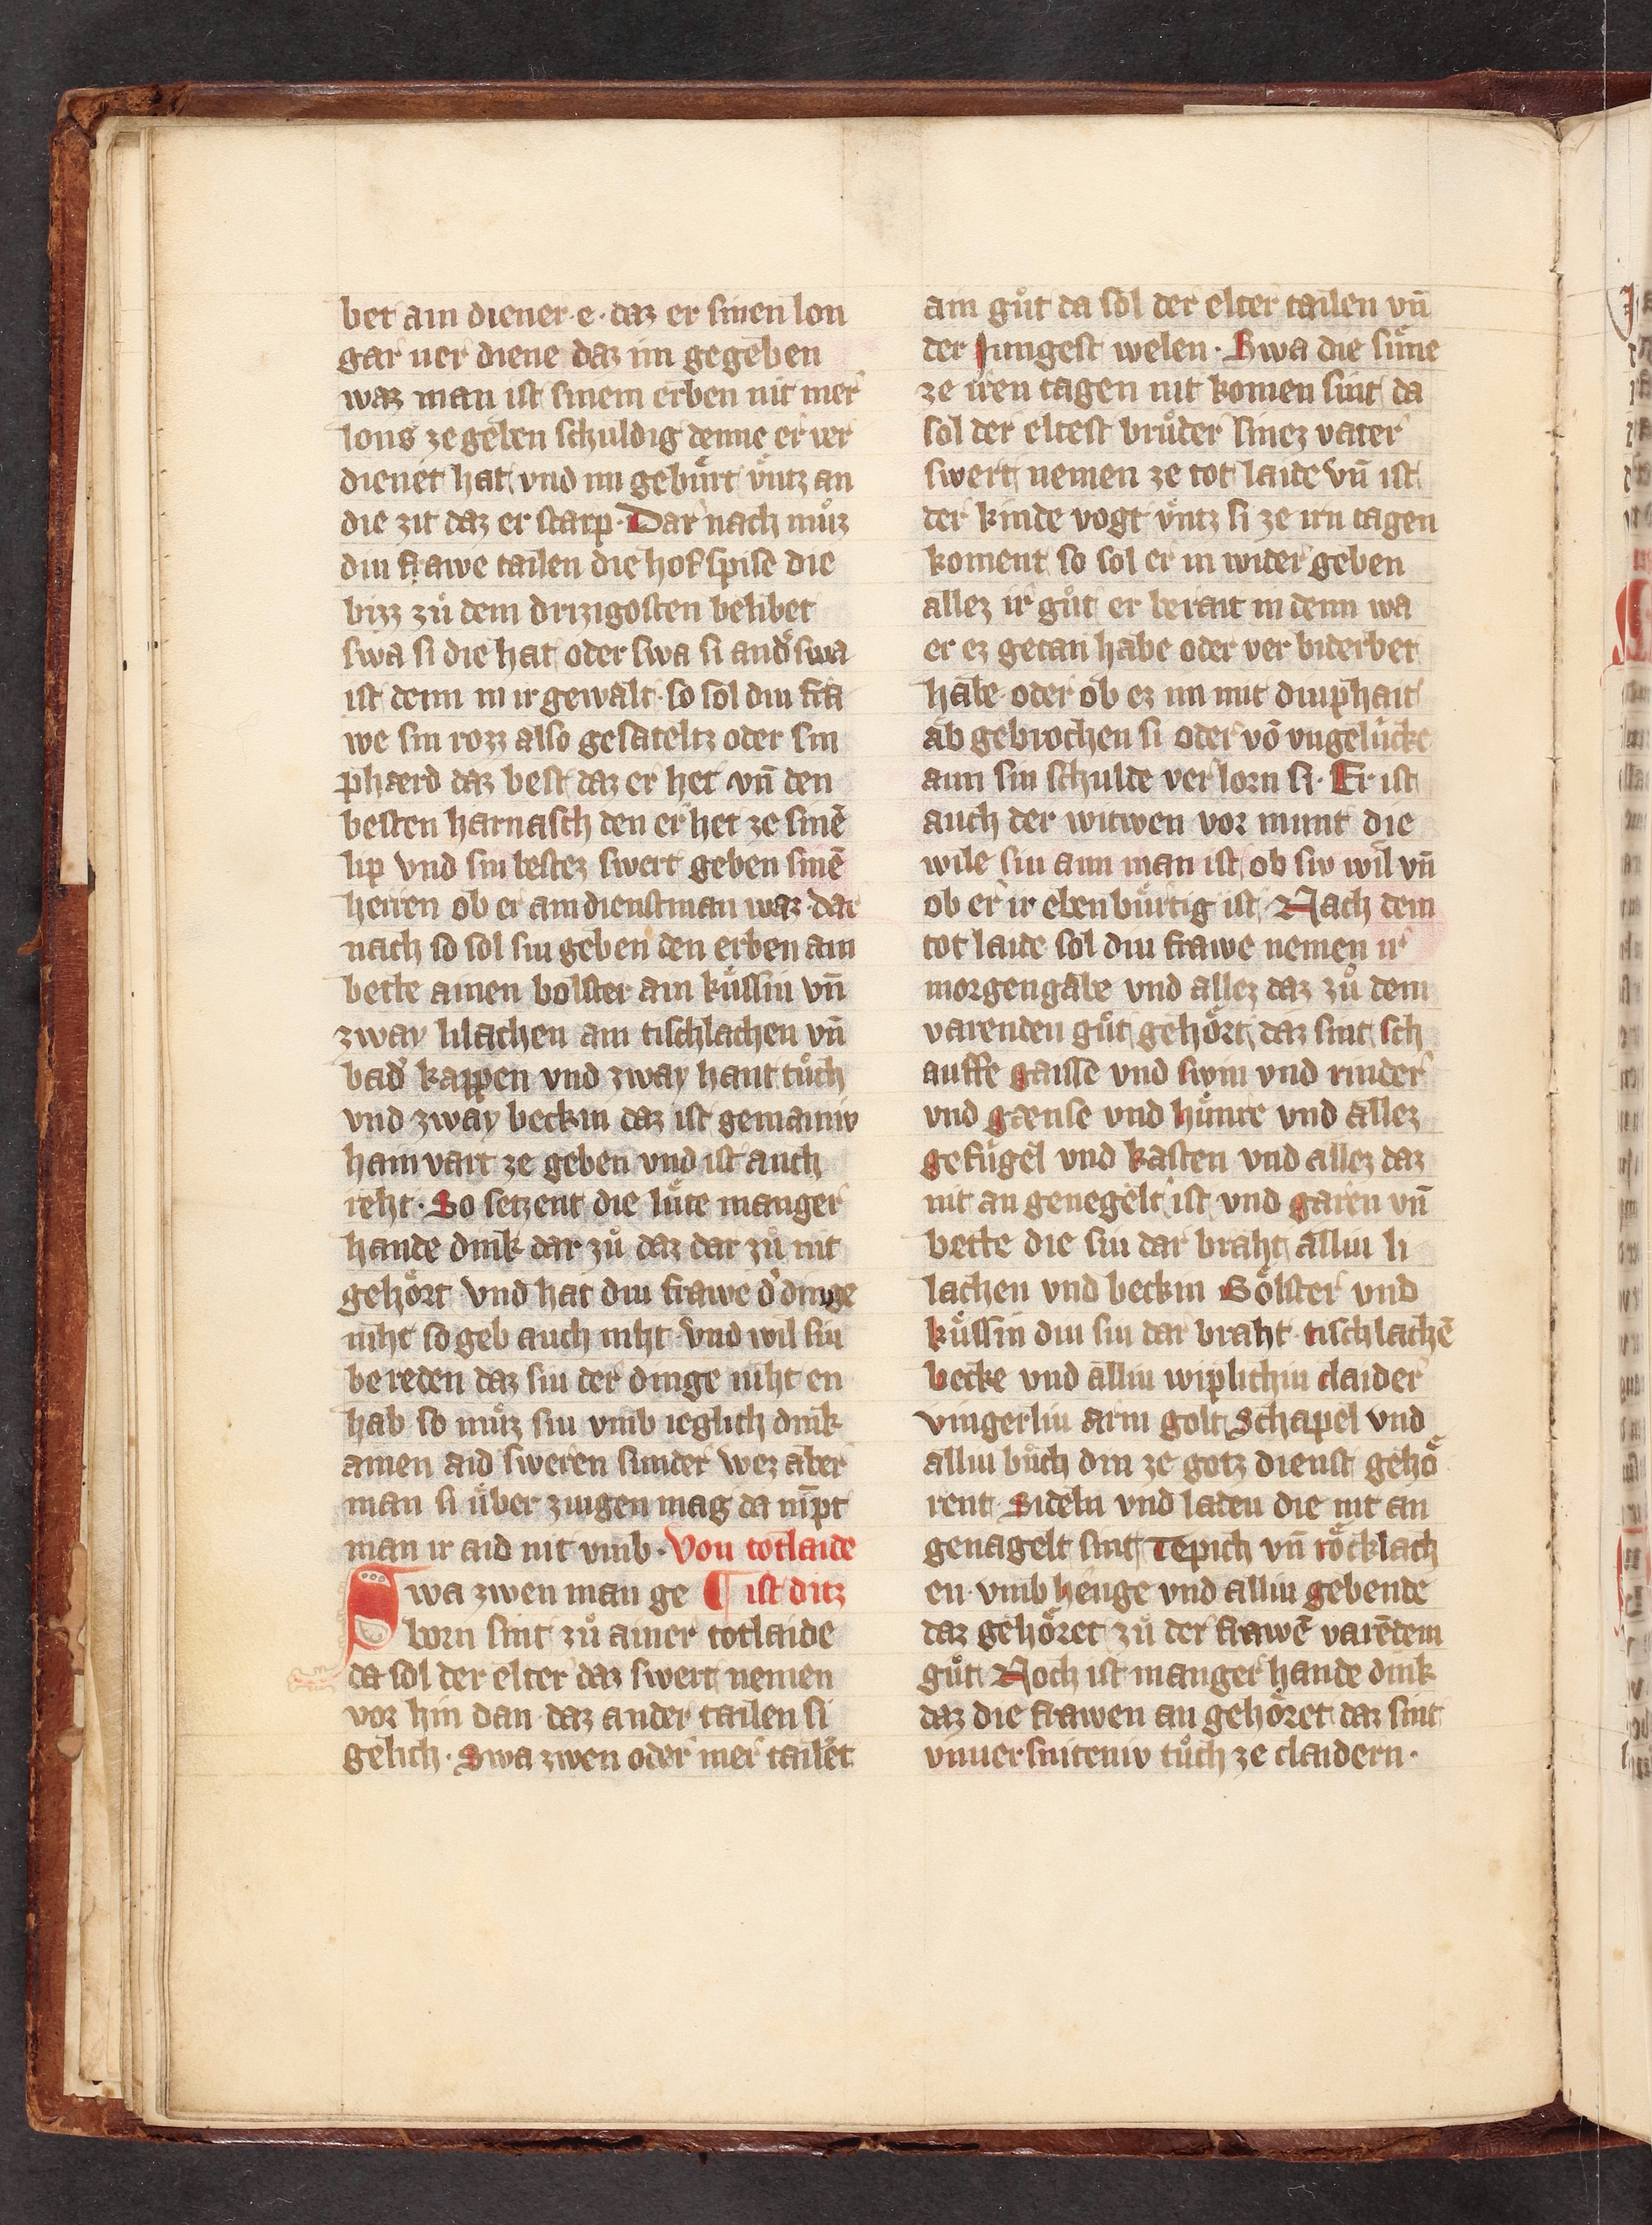 bet ain diener · e · daz er sinen lon
gar ver diene daz im gegeben
waz man ist sinem erben nit mer
lons ze geben schuldig denne er ver
dienet hat vnd im gebürt vͤntz an
die zit daz er starp · Dar nach mvͦz
diu frawe tailen die hof spise die
bizz zuͦ dem drizigosten belibet
swa si die hat oder swa si andˀswa
ist denn in ir gewalt · so sol diu fra
we sin rozz also gesateltz oder sin
phærd daz best daz er het vn̄ den
besten harnasch den er het ze sinē
lip vnd sin bestez swert geben sinē
herren ob er ain dienstman waz · dar
nach so sol siu geben den erben ain
bette ainen bolster ain kuͤssin vn̄
zway lilachen ain tischlachen vn̄
badˀ kappen vnd zway hant tuͦch
vnd zway beckin daz ist gemainiv
hain vart ze geben vnd ist auch
reht · So setzent die luͤte manger
hande dink dar zuͦ daz dar zuͦ nit
gehoͤrt vnd hat diu frawe dˀ dinge
niht so geb auch niht · vnd wil siu
be reden daz siu der dinge niht en
hab so muͦz siu vmb ieglich dink
ainen aid sweren sunder wez aber
man si uͤber zivgen mag da nīpt
man ir aid nit vmb · Von totlaide
Swa zwen man ge ¶ ist ditz
born sint zuͦ ainer totlaide
da sol der elter daz swert nemen
vor hin dan daz ander tailen si
gelich · Swa zwen oder mer tailēt
ain guͦt da sol der elter tailen vn̄
der Jungest welen · Swa die suͤne
ze iren tagen nit komen sint da
sol der eltest bruͦder sinez vater
swert nemen ze tot laide vn̄ ist
der kinde vogt vͤntz si ze irn tagen
koment so sol er in wider geben
allez ir guͦt er berait in denn wa
er ez getan habe oder ver biderbet
habe oder ob ez im mit diuphait
ab gebrochen si oder vō vngelücke
aun sin schulde ver lorn si · Er ist
auch der witwen vor munt die
wile siu aun man ist ob siv wil vn̄
ob er ir eben buͤrtig ist Nach dem
tot laide sol diu frawe nemen ir
morgengabe vnd allez daz zuͦ dem
varenden guͦt gehoͤrt daz sint sch
auffe gaisse vnd swin vnd rinder
vnd gaense vnd huͤnre vnd allez
gefügel vnd kasten vnd allez daz
nit an genegelt ist vnd garen vn̄
bette die siu dar braht alliu li
lachen vnd beckin Boͤlster vnd
kuͤssin diu siu dar braht · tischlachē
becke vnd alliu wiplichiu claider
vingerliu arm golt Schapel vnd
alliu buͦch diu ze gotz dienst gehoͤ
rent Sideln vnd laden die nit an
genagelt sint Tepich vn̄ roͤcklach
en · vmb henge vnd alliu gebende
daz gehoͤret zuͦ der frawē varēdem
guͦt Noch ist manger hande dink
daz die frawen an gehoͤret daz sint
vnuersniteniv tuͦch ze claidern ·